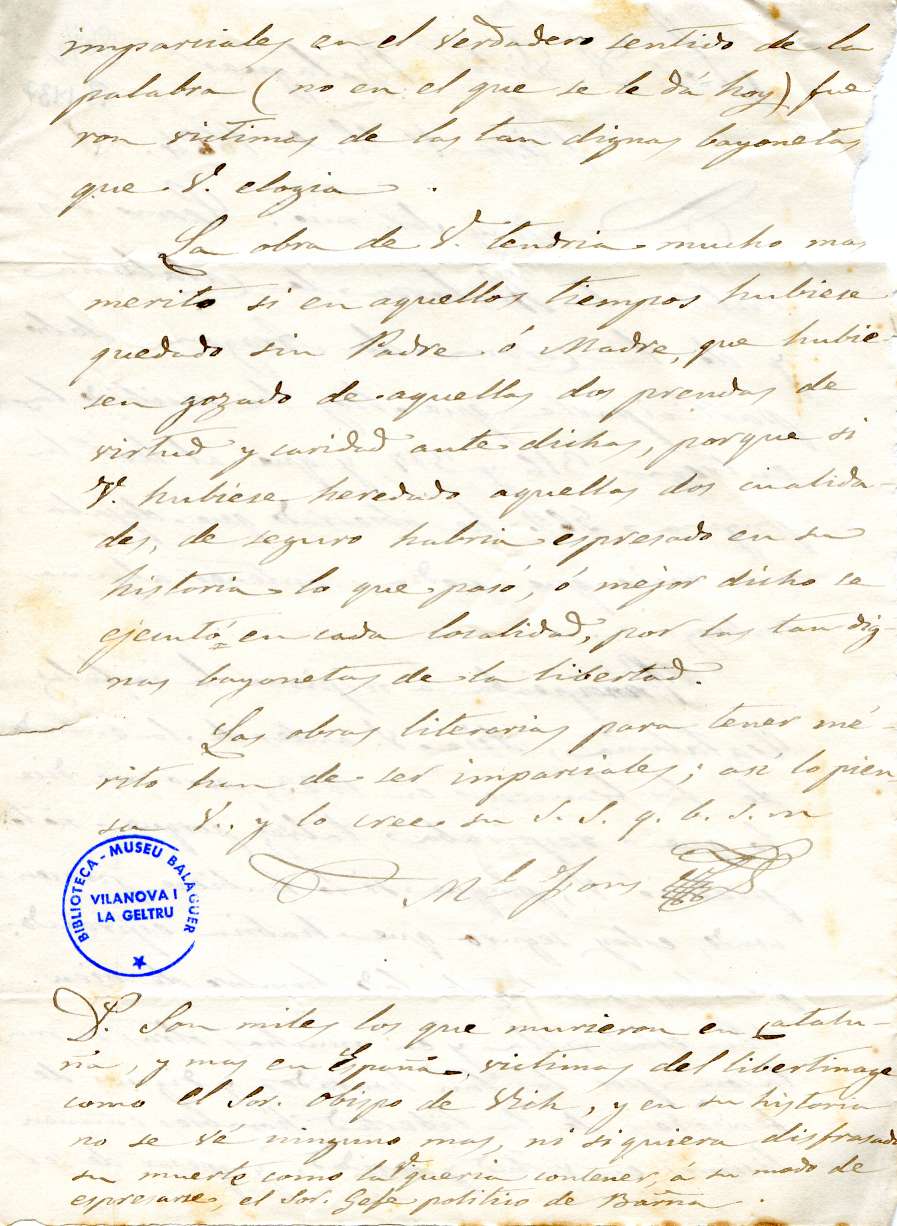 imparciales en el verdadero sentido de la
palabra (no en el que se le dá hoy) fue
ron victimas de las tan dignas bayonetas
que V. elogia.
La obra de V. tendria mucho mas
merito si en aquellos tiempos hubiese
quedado sin Padre ó Madre, que hubie-
sen gozado de aquellas dos prendas de
virtud y caridad ante dichas, porque si
V. hubiese heredado aquellas dos cualida-
des, de seguro habria espresado en su
historia lo que pasó, ó mejor dicho se
ejecutó en cada localidad, por las tan dig-
nas bayonetas de la libertad.
Las obras literarias para tener mé-
rito han de ser imparciales; así lo pien-
sa V. y lo cree su S. S. q. b. s. m
Ml. Fons
BIBLIOTECA - MUSEU BALAGUER
VILANOVA I
LA GELTRU
P. Son miles los que murieron en Catalu-
ña, y mas en España, victimas del libertinage
como el Sor. Obispo de Vich, y en su historia
no se vé ninguno mas, ni siquiera disfrasada
su muerte como la queria contener, á su modo de
espresarse, el Sor. Gefe politico de Barña.